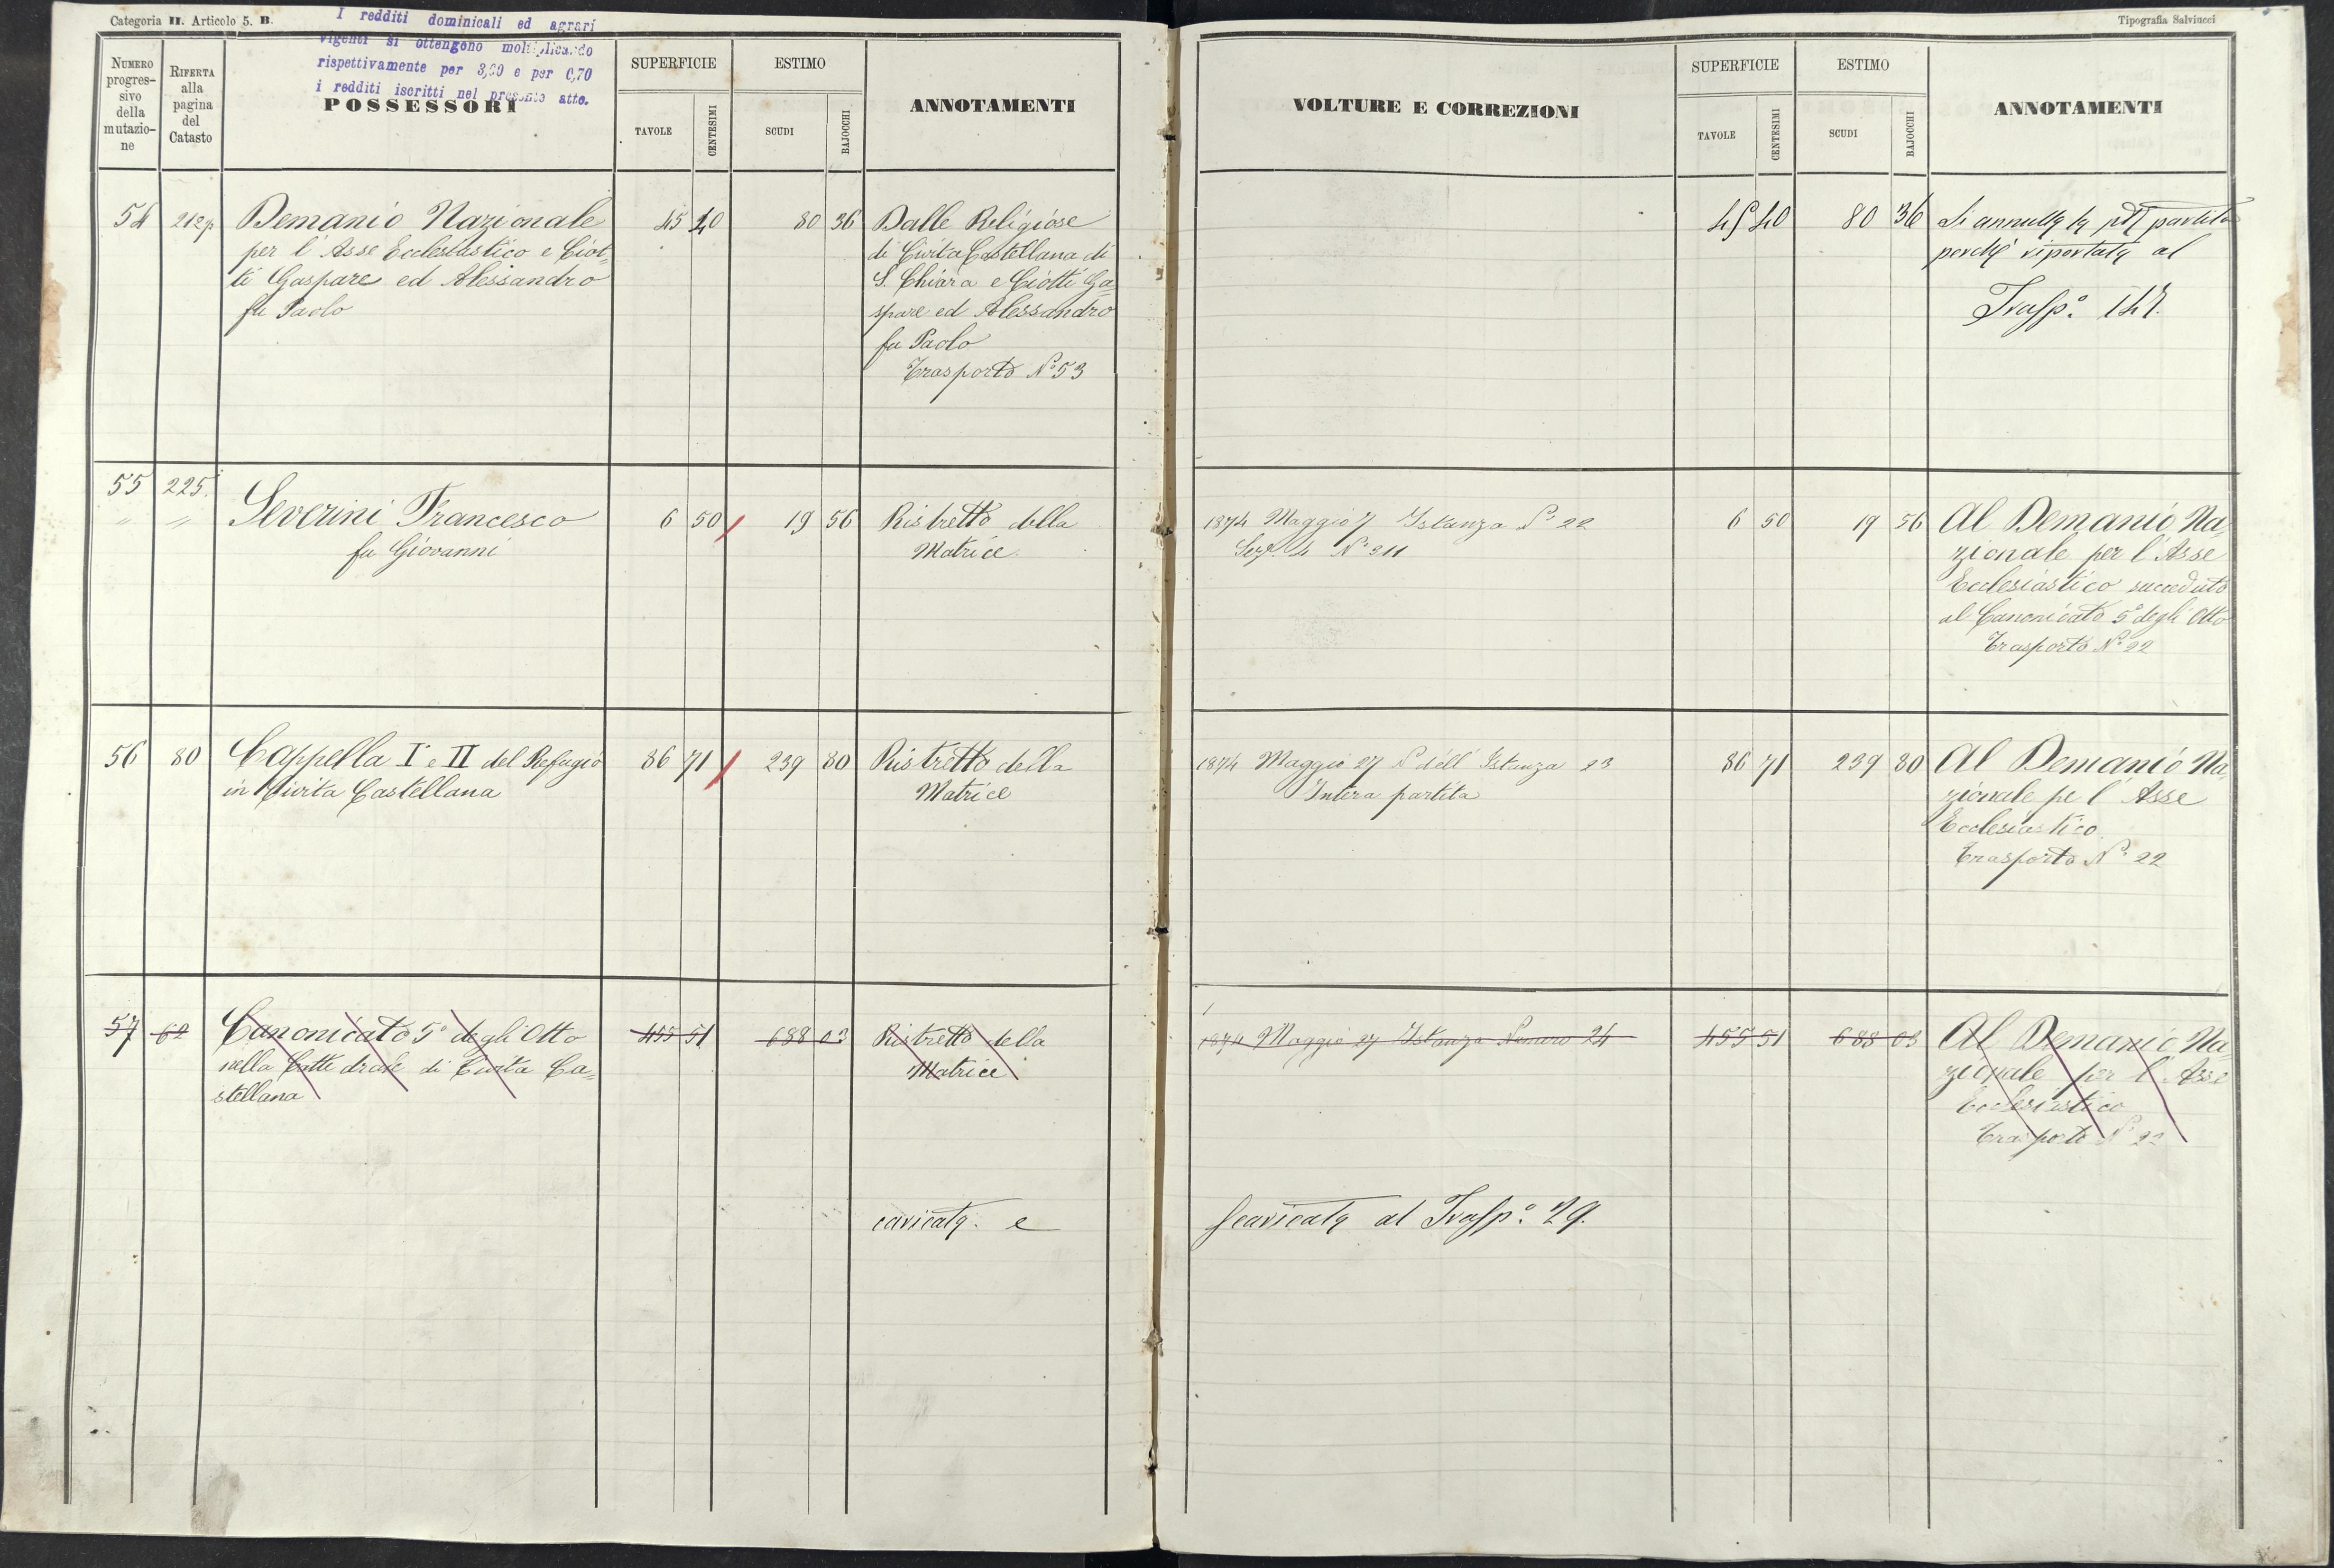 Categoria II. Articolo 5. B.
I redditi dominicali ed agrari
vigenti si ottengono moltiplicando
rispettivamente per 3,20 e per 0,70
i redditi iscritti nel presente atto.
NUMERO progres-
sivo
della
mutazio-
ne
RIFERTA
alla
pagina
del
Catasto
POSSESSORI
SUPERFICIE
TAVOLE CENTESIMI
ESTIMO
SCUDI BAJOCCHI
ANNOTAMENTI
54 212p Demanio Nazionale 45 40 80 36 Dalle Religiose
per l'Asse Ecclesiastico e Ciot- di Civita Castellana di
ti Gaspare ed Alessandro S. Chiara e Ciotti Ga=
fu Paolo spare ed Alessandro
fu Paolo
Trasporto N° 53
55 225.
" " Severini Francesco 6 50 19 56 Ristretto della
fu Giovanni Matrice
56 80 Cappella I e II del Refugio 86 71 239 80 Ristretto della
in Civita Castellana Matrice
57 62 Canonicato 5° degli Otto 455 51 688 03 Ristretto della
nella Cattedrale di Civita Ca= Matrice
stellana
caricata e
Tipografia Salviucci
VOLTURE E CORREZIONI
SUPERFICIE
TAVOLE CENTESIMI
ESTIMO
SCUDI BAJOCCHI
ANNOTAMENTI
45 40 80 36 Si annulla la partita
perché riportata al
Trasp.°
1874 Maggio 7 Istanza N° 22 6 50 19 56 Al Demanio Na=
Sez. 4 N° 211 zionale per l'Asse
Ecclesiastico succeduto
al Canonicato 5° degli Otto
Trasporto N° 22
1874 Maggio 27 N° dell'Istanza 23 86 71 239 80 Al Demanio Na=
Intera partita zionale pe l'Asse
Ecclesiastico
Trasporto N° 22
1874 Maggio 27 Istanza Numero 24 455 51 688 03 Al Demanio Na=
zionale per l'Asse
Ecclesiastico
Trasporto N° 22
Scaricata al Trasp.° 29.